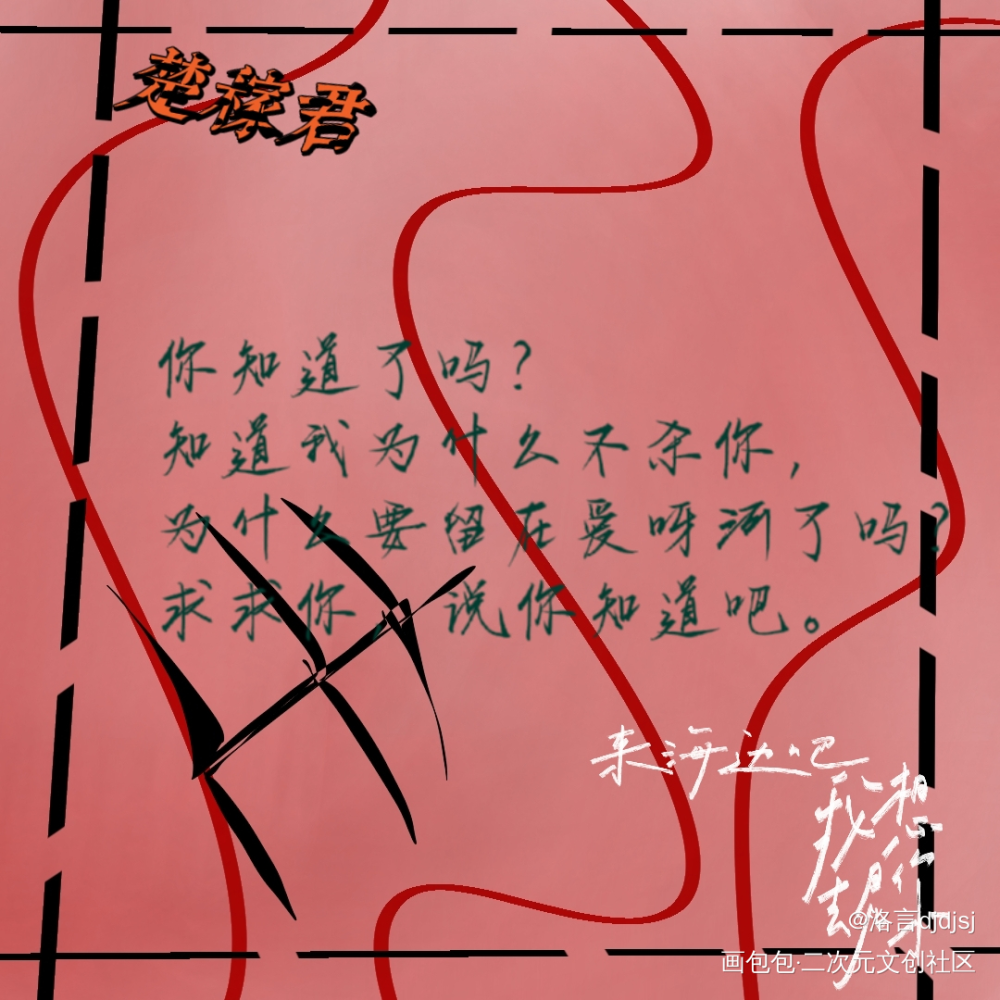 楚稼君
你知道了吗？
知道我为什么不杀你，
为什么要留在爱呀河了吗？
求求你，说你知道吧。
来海边吧
我想
去
@洛言djdjsj
画包包·二次元文创社区